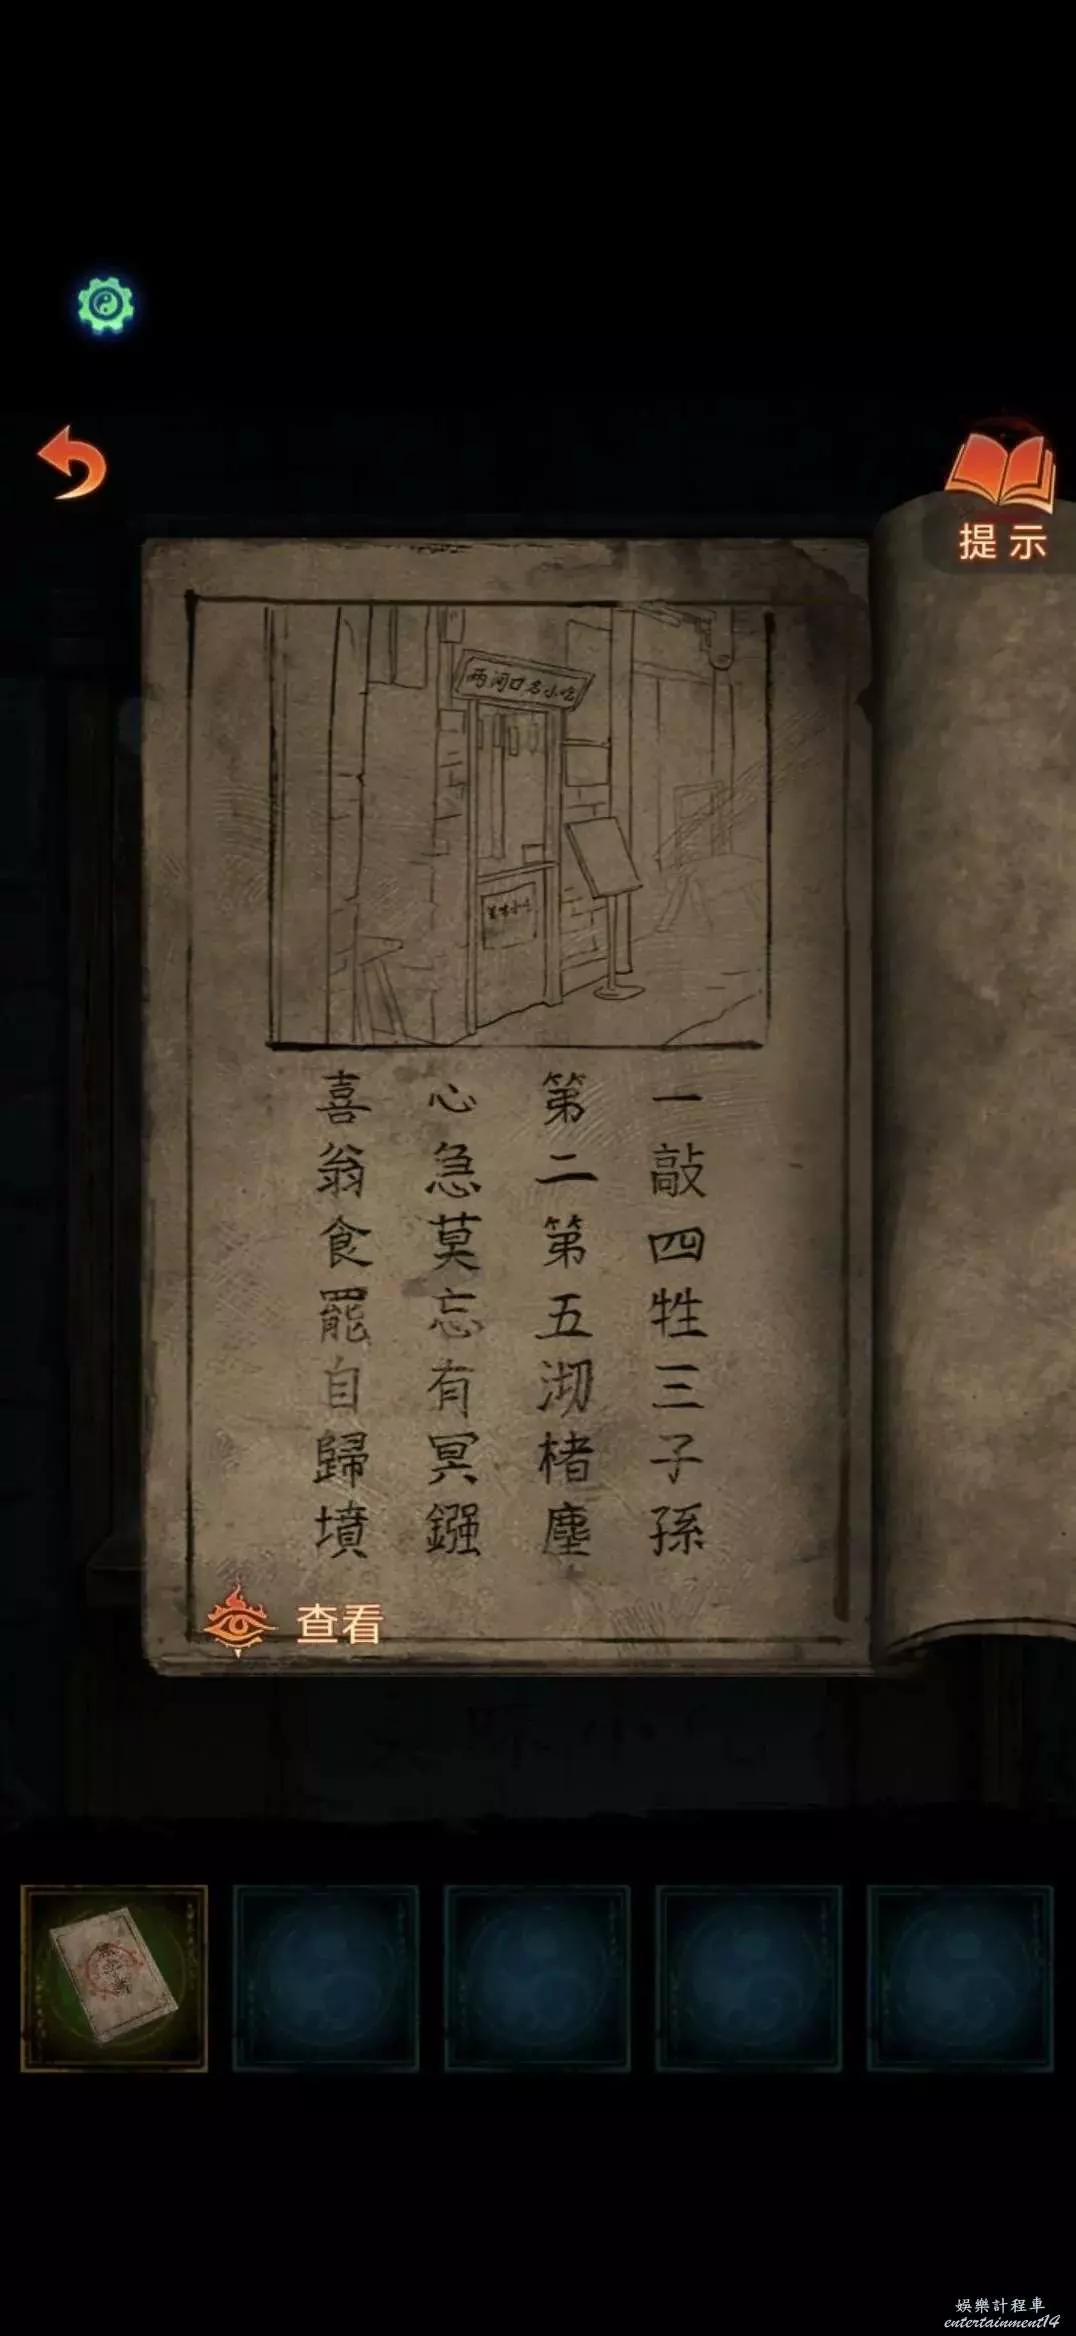 提示
两河口名小吃
美味小吃
一敲四牲三子孫
第二第五沏楮塵
心急莫忘有冥鏹
喜翁食罷自歸墳
查看
娛樂計程車
entertainment14